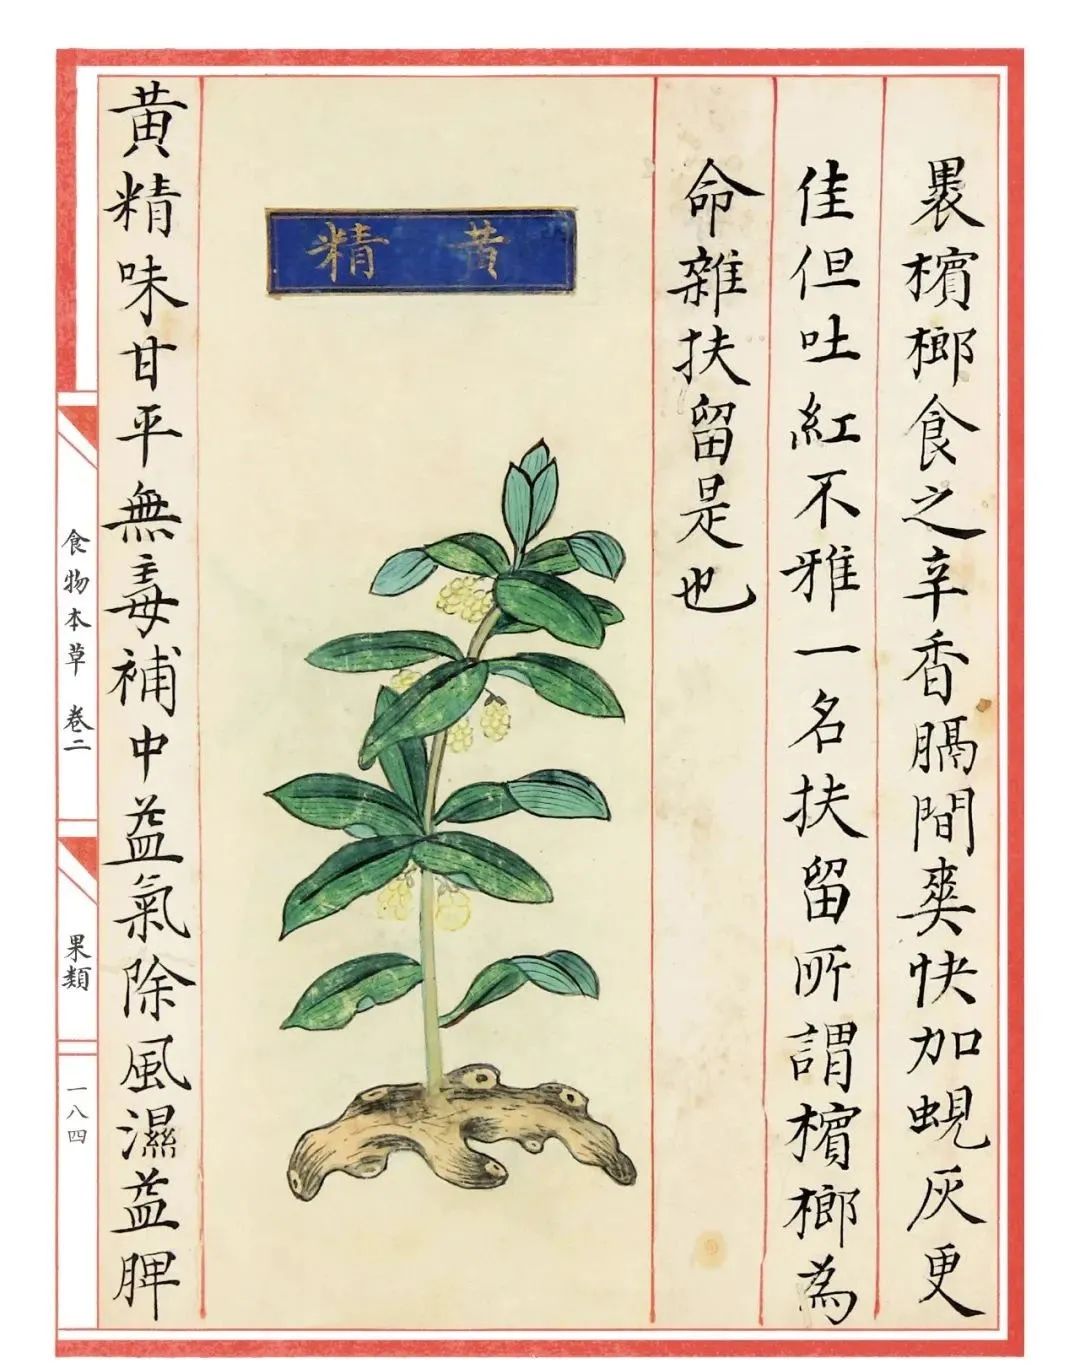 裹檳榔食之辛香膈間爽快加蜆灰更
佳但吐紅不雅一名扶留所謂檳榔為
命雜扶留是也
黃精
黃精味甘平無毒補中益氣除風濕益脾
食物本草 卷二
果類
一八四